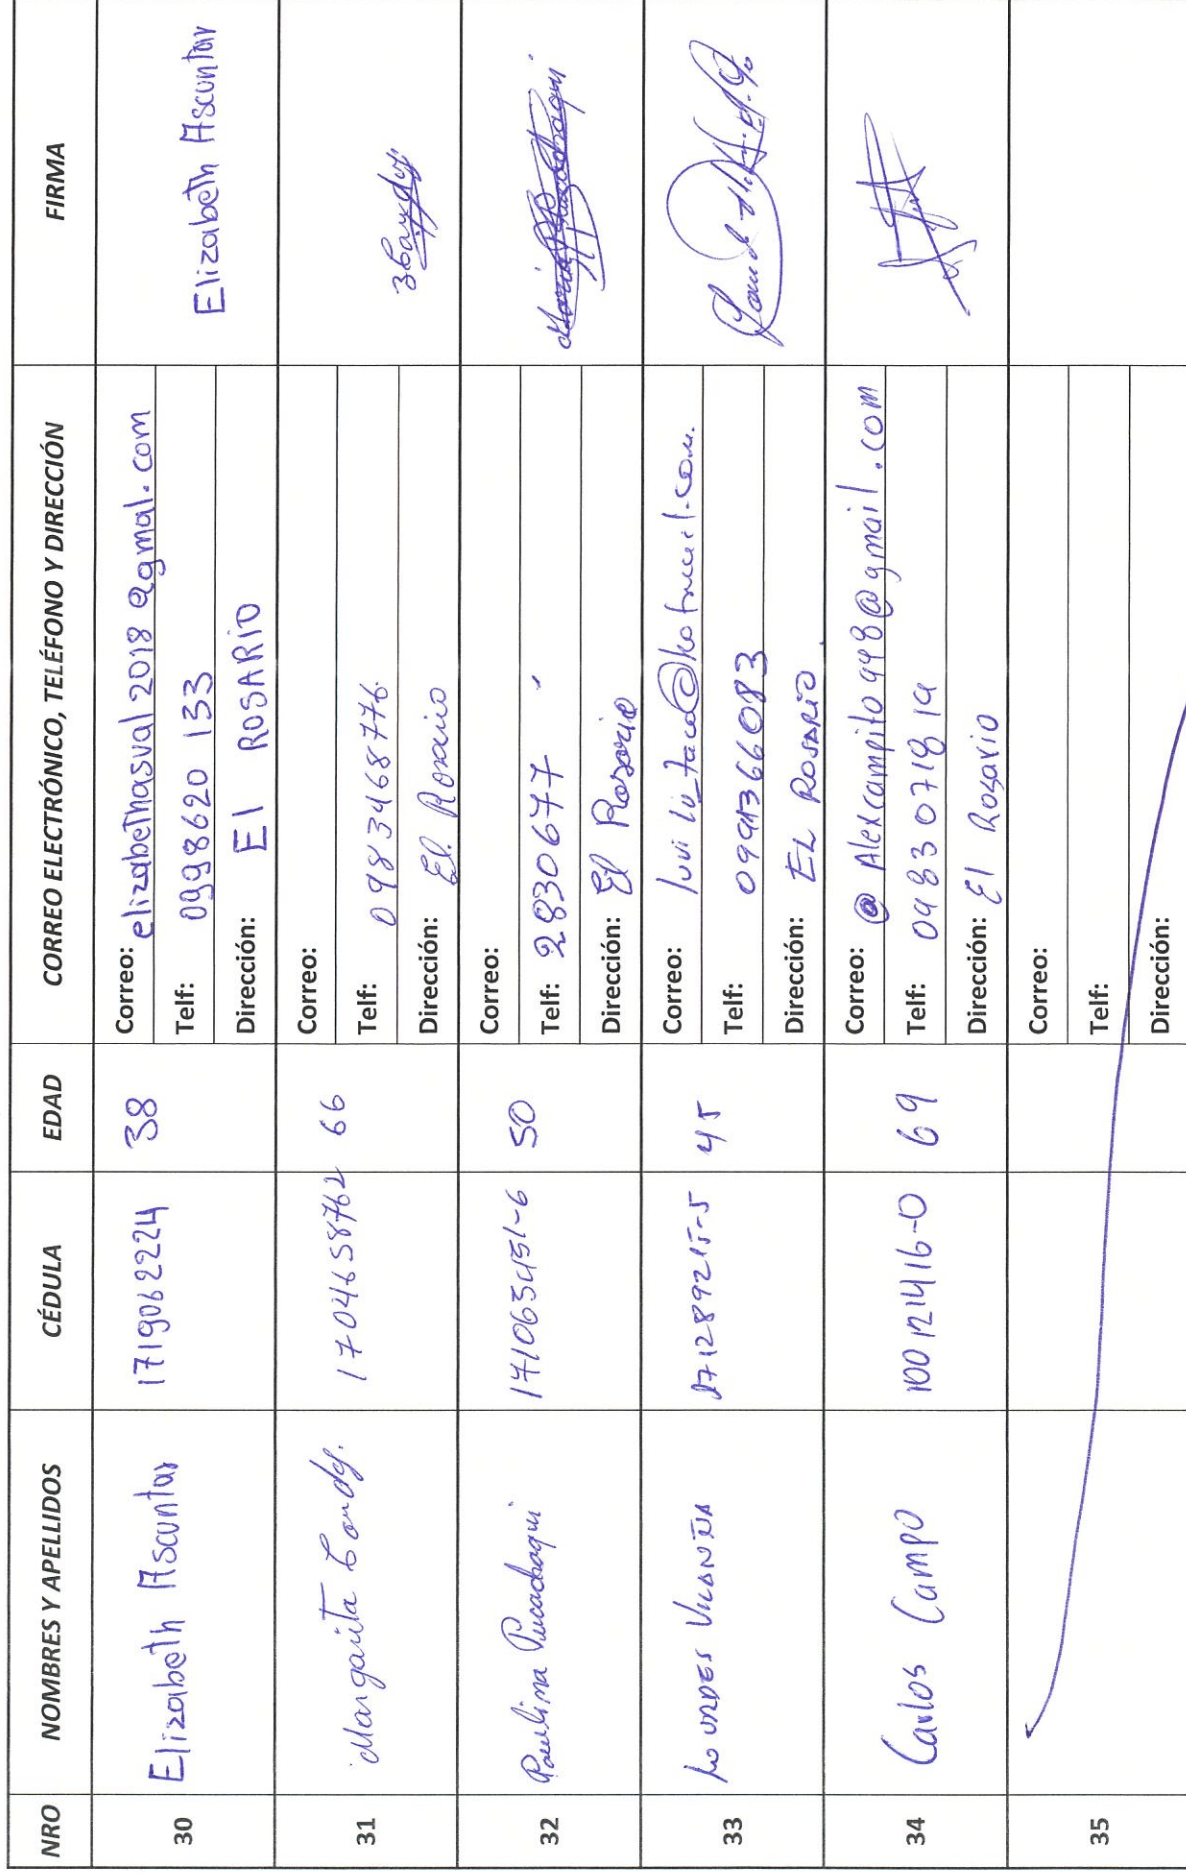 NRO NOMBRES Y APELLIDOS CÉDULA EDAD CORREO ELECTRÓNICO, TELÉFONO Y DIRECCIÓN FIRMA
30 Elizabeth Ascuntar 1719062224 38
Correo: elizabethasval2018@gmal.com
Telf: 0998620133
Dirección: El ROSARIO
Elizabeth Ascuntar
31 Margarita 1704658762 66
Correo:
Telf: 0983468776
Dirección: El Rosario
32 Paulina Pucachaqui 50
Correo:
Telf: 2830677
Dirección: El Rosario
33 LOURDES VILAÑA 171289215-5 45
Correo:
Telf:
Dirección: EL ROSARIO
34 Carlos Campo 100121416-0 69
Correo: @ Alexcampito998@gmail.com
Telf: 0983071819
Dirección: El Rosario
35
Correo:
Telf:
Dirección: